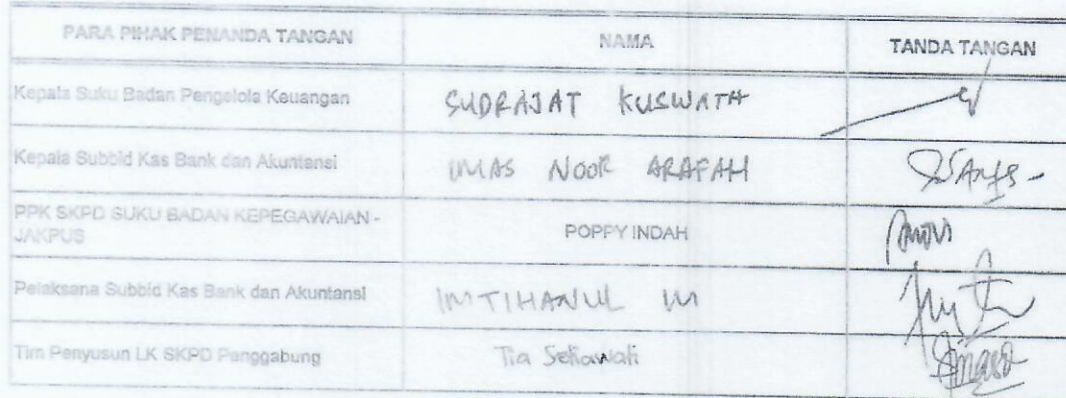 PARA PIHAK PENANDA TANGAN NAMA TANDA TANGAN
Kepala Suku Badan Pengelola Keuangan SUDRAJAT KUSWATA
Kepala Subbid Kas Bank dan Akuntansi IMAS NOOR ARAFAH
PPK SKPD SUKU BADAN KEPEGAWAIAN -
JAKPUS POPPY INDAH
Pelaksana Subbid Kas Bank dan Akuntansi IMTIHANUL M
Tim Penyusun LK SKPD Penggabung Tia Setiawati